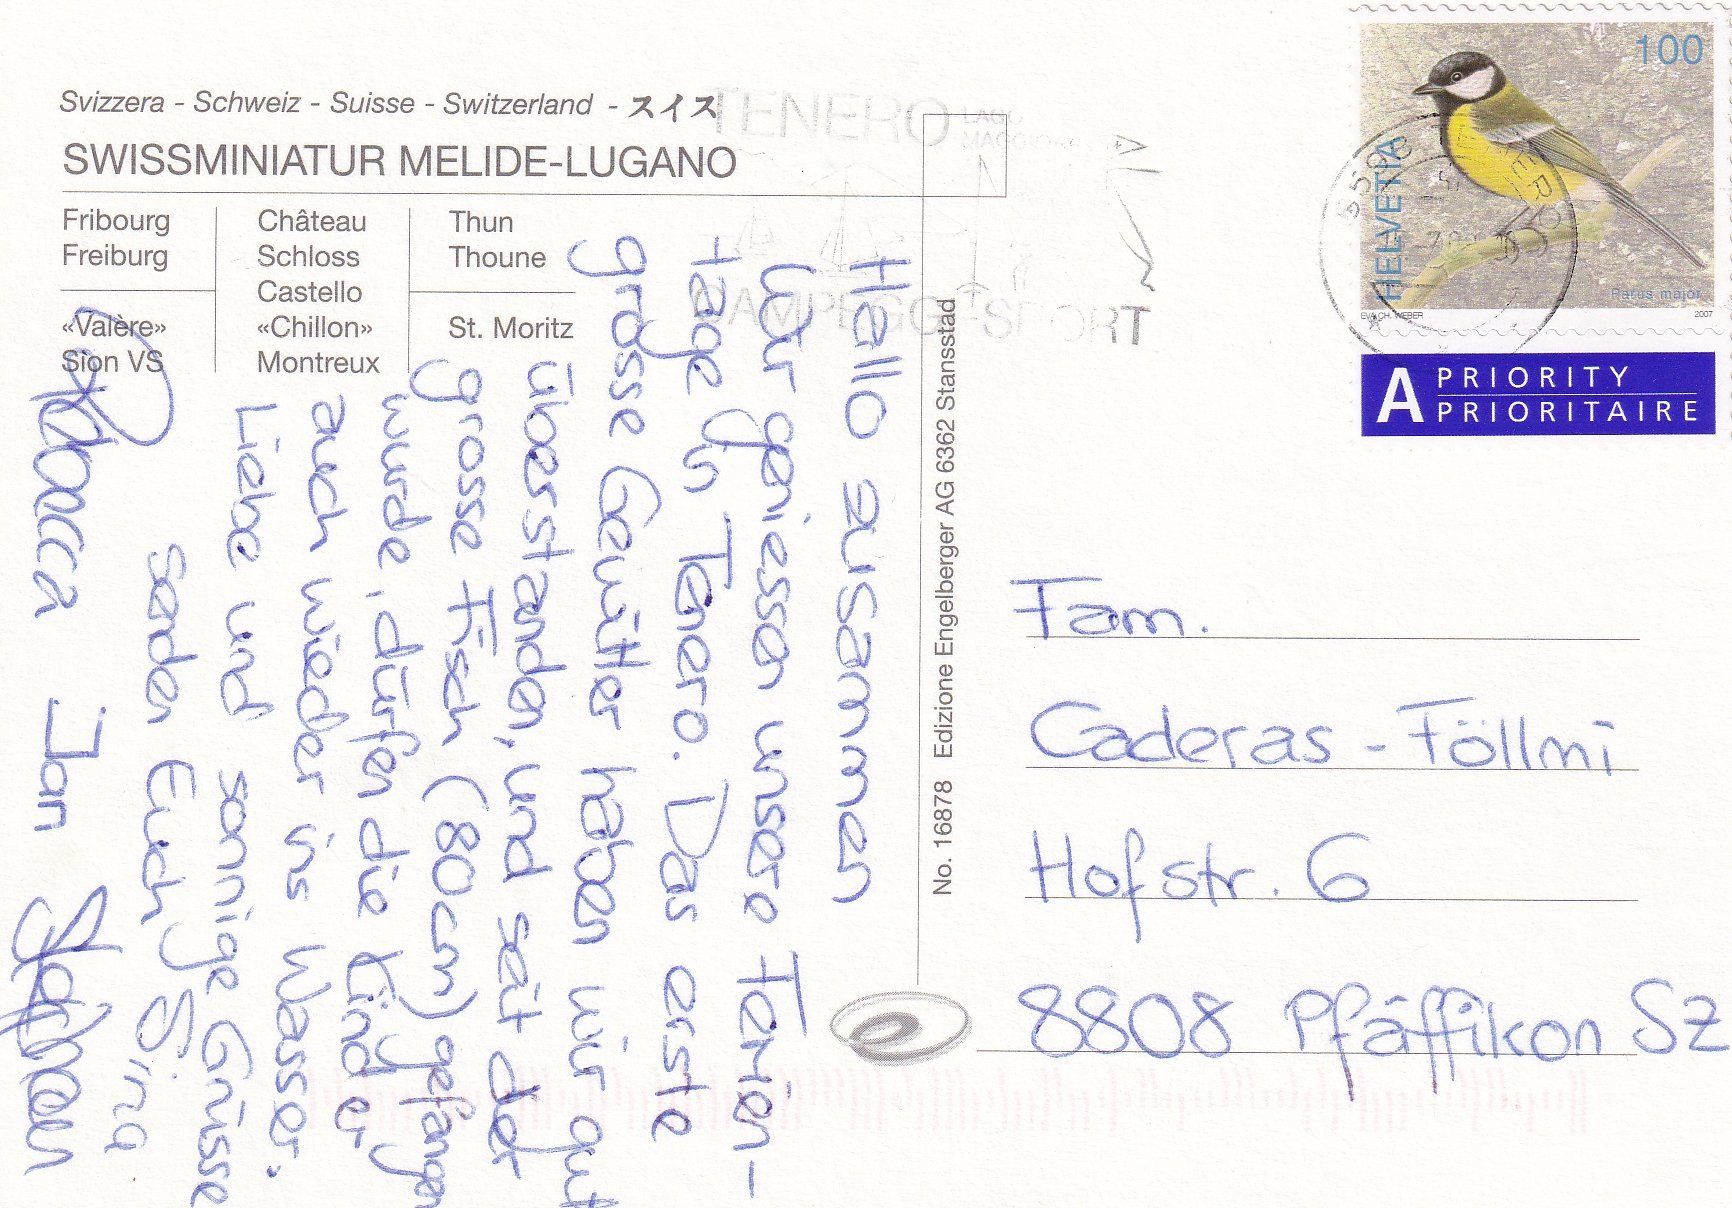 Svizzera - Schweiz - Suisse - Switzerland - スイス
SWISSMINIATUR MELIDE-LUGANO
Fribourg
Freiburg
«Valère»
Sion VS
Château
Schloss
Castello
«Chillon»
Montreux
Thun
Thoune
St. Moritz
TENERO LAGO
MAGGIORE
CAMPEGGI-SPORT
Hallo zusammen
Wir geniessen unsere Ferien-
tage in Tenero. Das erste
grösse Gewitter haben wir gut
überstanden, und seit der
grosse Fisch (80cm) gefangen
wurde, dürfen die Kinder
auch wieder ins Wasser.
Liebe und sonnige Grüsse
senden Euch
Jan
No. 16878 Edizione Engelberger AG 6362 Stansstad
e
100
HELVETIA
Parus major
EVA CH. WEBER 2007
6598 TENERO
A PRIORITY
PRIORITAIRE
Fam.
Caderas - Föllmi
Hofstr. 6
8808 Pfäffikon SZ